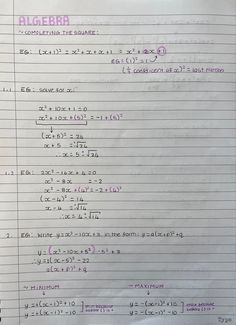 ALGEBRA
~ COMPLETING THE SQUARE:
EG: (x+1)² = x² + x + x + 1 = x² + 2x + 1
EG = (1)² = 1
(½ coefficient of x)² = last number
1.1 EG: solve for x:
x² + 10x + 1 = 0
x² + 10x + (5)² = -1 + (5)²
(x+5)² = 24
x + 5 = ±√24
∴ x = 5 ± √24
1.2 EG: 2x² - 16x + 4 = 0
x² - 8x = -2
x² - 8x + (4)² = -2 + (4)²
(x-4)² = 14
x - 4 = ±√14
∴ x = 4 ± √14
2. EG: Write y = x² - 10x + 3 in the form: y = a(x+p)² + q
y = (x² - 10x + 5²) - 5² + 3
∴ y = 1(x-5)² - 22
a(x+p)² + q
~ MINIMUM ~ MAXIMUM
y = +(x-1)² + 10 y = -(x-1)² + 10
y = +(x-1)² - 10 y = -(x-1)² - 10